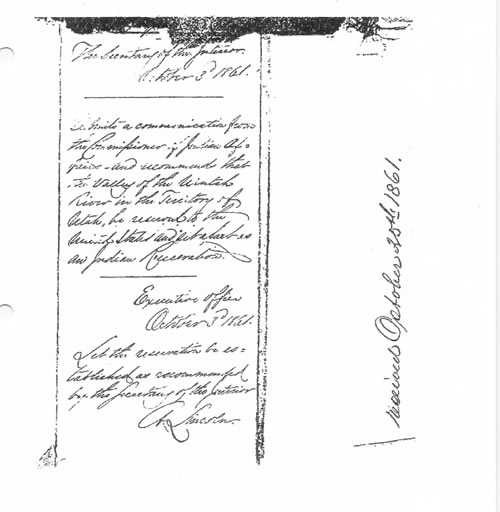 The Secretary of the Interior.
October 3d 1861.
Submits a communication from
the Commissioner of Indian Af=
fairs - and recommends that
the Valley of the Uintah
River in the Territory of
Utah, be reserved to the
United States and set apart as
an Indian Reservation.
Executive office
October 3d 1861.
Let the reservation be es=
tablished as recommended
by the Secretary of the Interior
A. Lincoln.
received October 20th 1861.